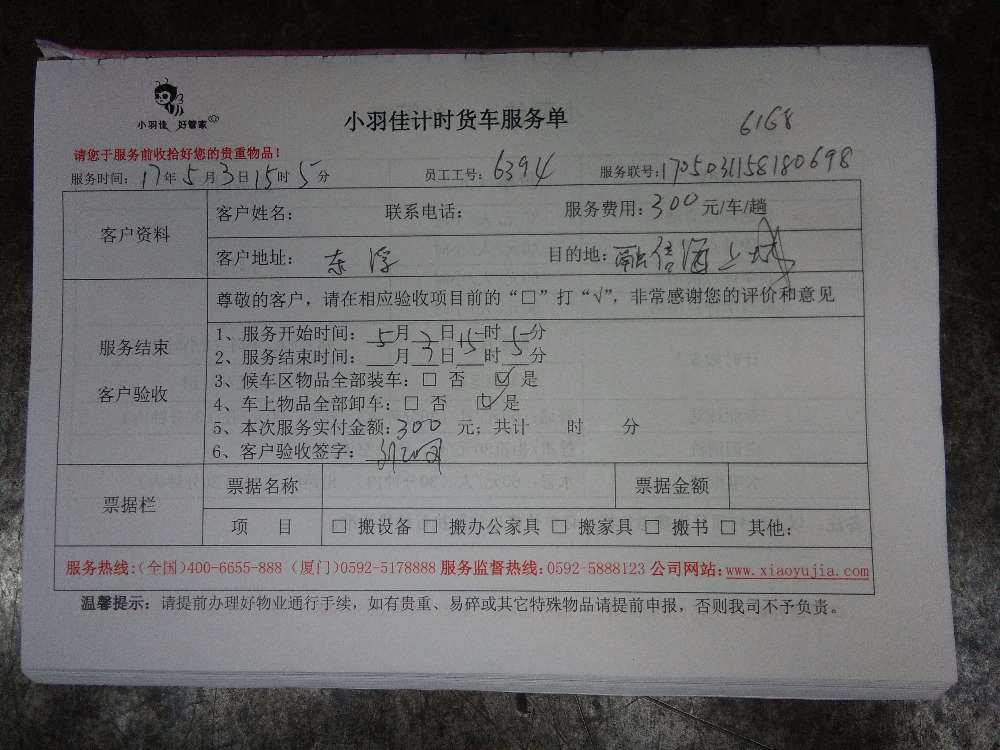 小羽佳 好管家
小羽佳计时货车服务单
6168
请您于服务前收拾好您的贵重物品!
服务时间: 17年5月3日15时5分 员工工号: 6394 服务联号: 1705031158180698
客户资料
客户姓名: 联系电话; 服务费用: 300元/车/趟
客户地址: 东浮 目的地: 融信海上城
服务结束
客户验收
尊敬的客户，请在相应验收项目前的“□”打“√”，非常感谢您的评价和意见
1、服务开始时间: 5月3日15时5分
2、服务结束时间: 月 日 时5分
3、候车区物品全部装车: □ 否 ☑ 是
4、车上物品全部卸车: □ 否 ☑ 是
5、本次服务实付金额: 300 元; 共计 时 分
6、客户验收签字:
票据栏
票据名称 票据金额
项 目 □ 搬设备 □ 搬办公家具 □ 搬家具 □ 搬书 □ 其他:
服务热线:(全国)400-6655-888 (厦门)0592-5178888 服务监督热线:0592-5888123 公司网站:www.xiaoyujia.com
温馨提示: 请提前办理好物业通行手续，如有贵重、易碎或其它特殊物品请提前申报，否则我司不予负责。